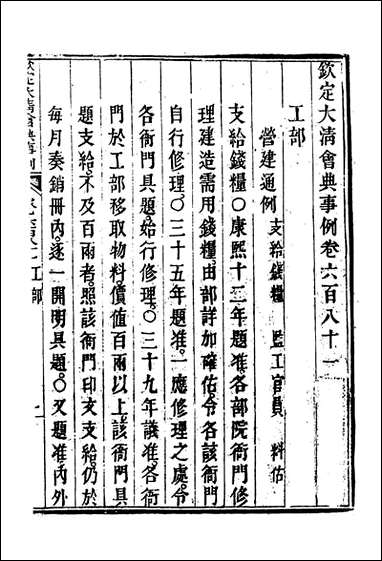 欽定大清會典事例卷六百八十一
工部
營建通例 支給錢糧 監工官員 料估
支給錢糧○康熙十三年題准。各部院衙門修
理建造需用錢糧。由部詳加確估。令各該衙門
自行修理。○三十五年題准。一應修理之處。令
各衙門具題。始行修理。○三十九年議准。各衙
門於工部移取物料。價值百兩以上。該衙門具
題支給。不及百兩者。照該衙門印文支給。仍於
每月奏銷冊內。逐一開明具題。○又題准。內外
欽定大清會典事例
工部